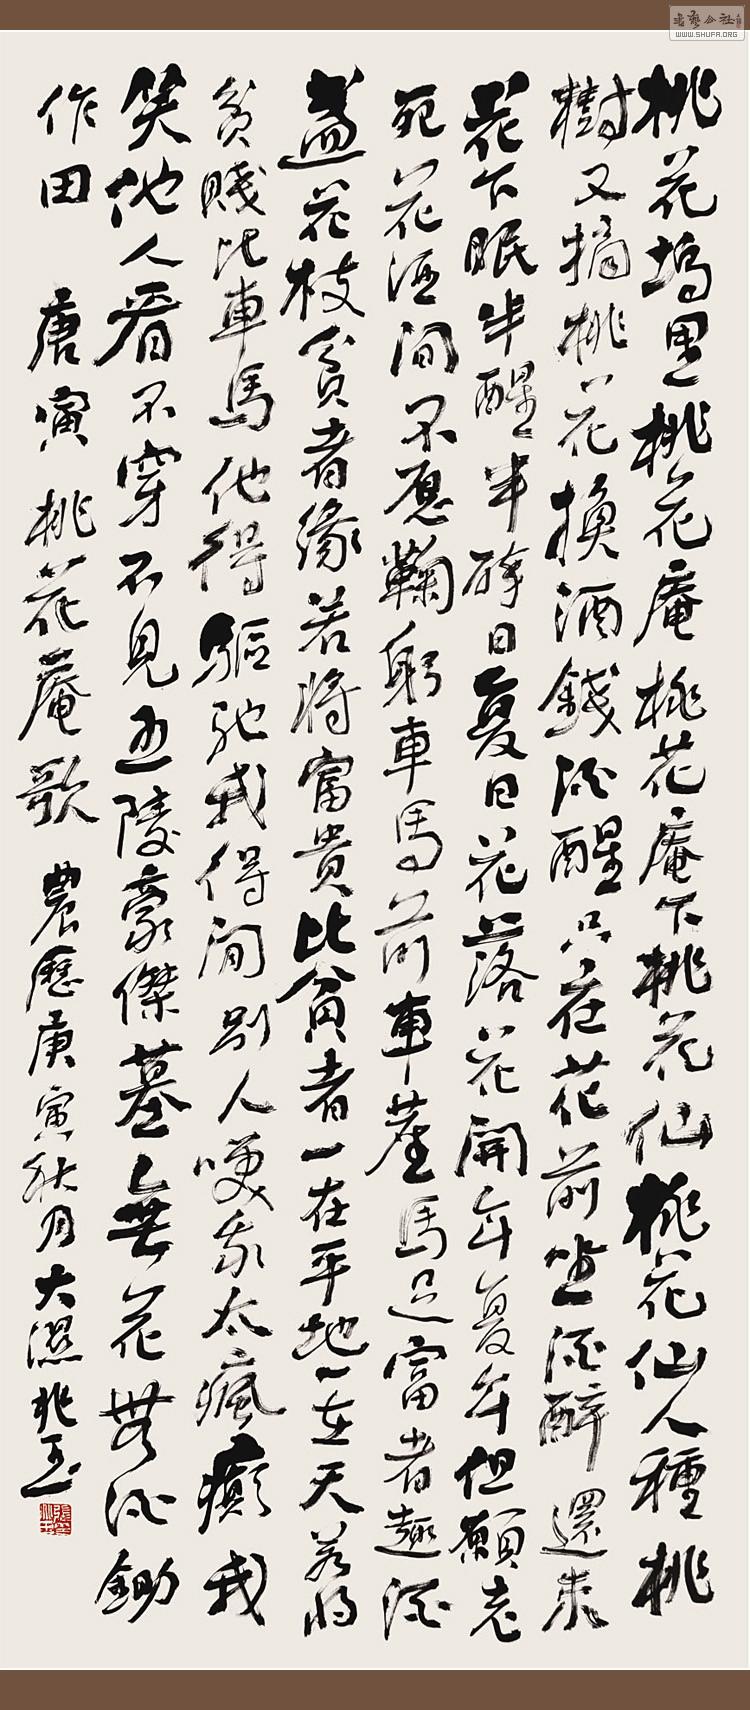 桃花塢里桃花庵桃花庵下桃花仙桃花仙人種桃
樹又摘桃花換酒錢酒醒只在花前坐酒醉還來
花下眠半醒半醉日复日花落花開年复年但願老
死花酒間不愿鞠躬車馬前車塵馬足富者趣酒
盞花枝貧者緣若將富貴比貧者一在平地一在天若將
貧賤比車馬他得驅馳我得閒別人咲我太瘋癲我
笑他人看不穿不見五陵豪傑墓無花無酒鋤
作田 唐寅 桃花庵歌 農歷庚寅秋月大濕兆玉
WWW.SHUFA.ORG